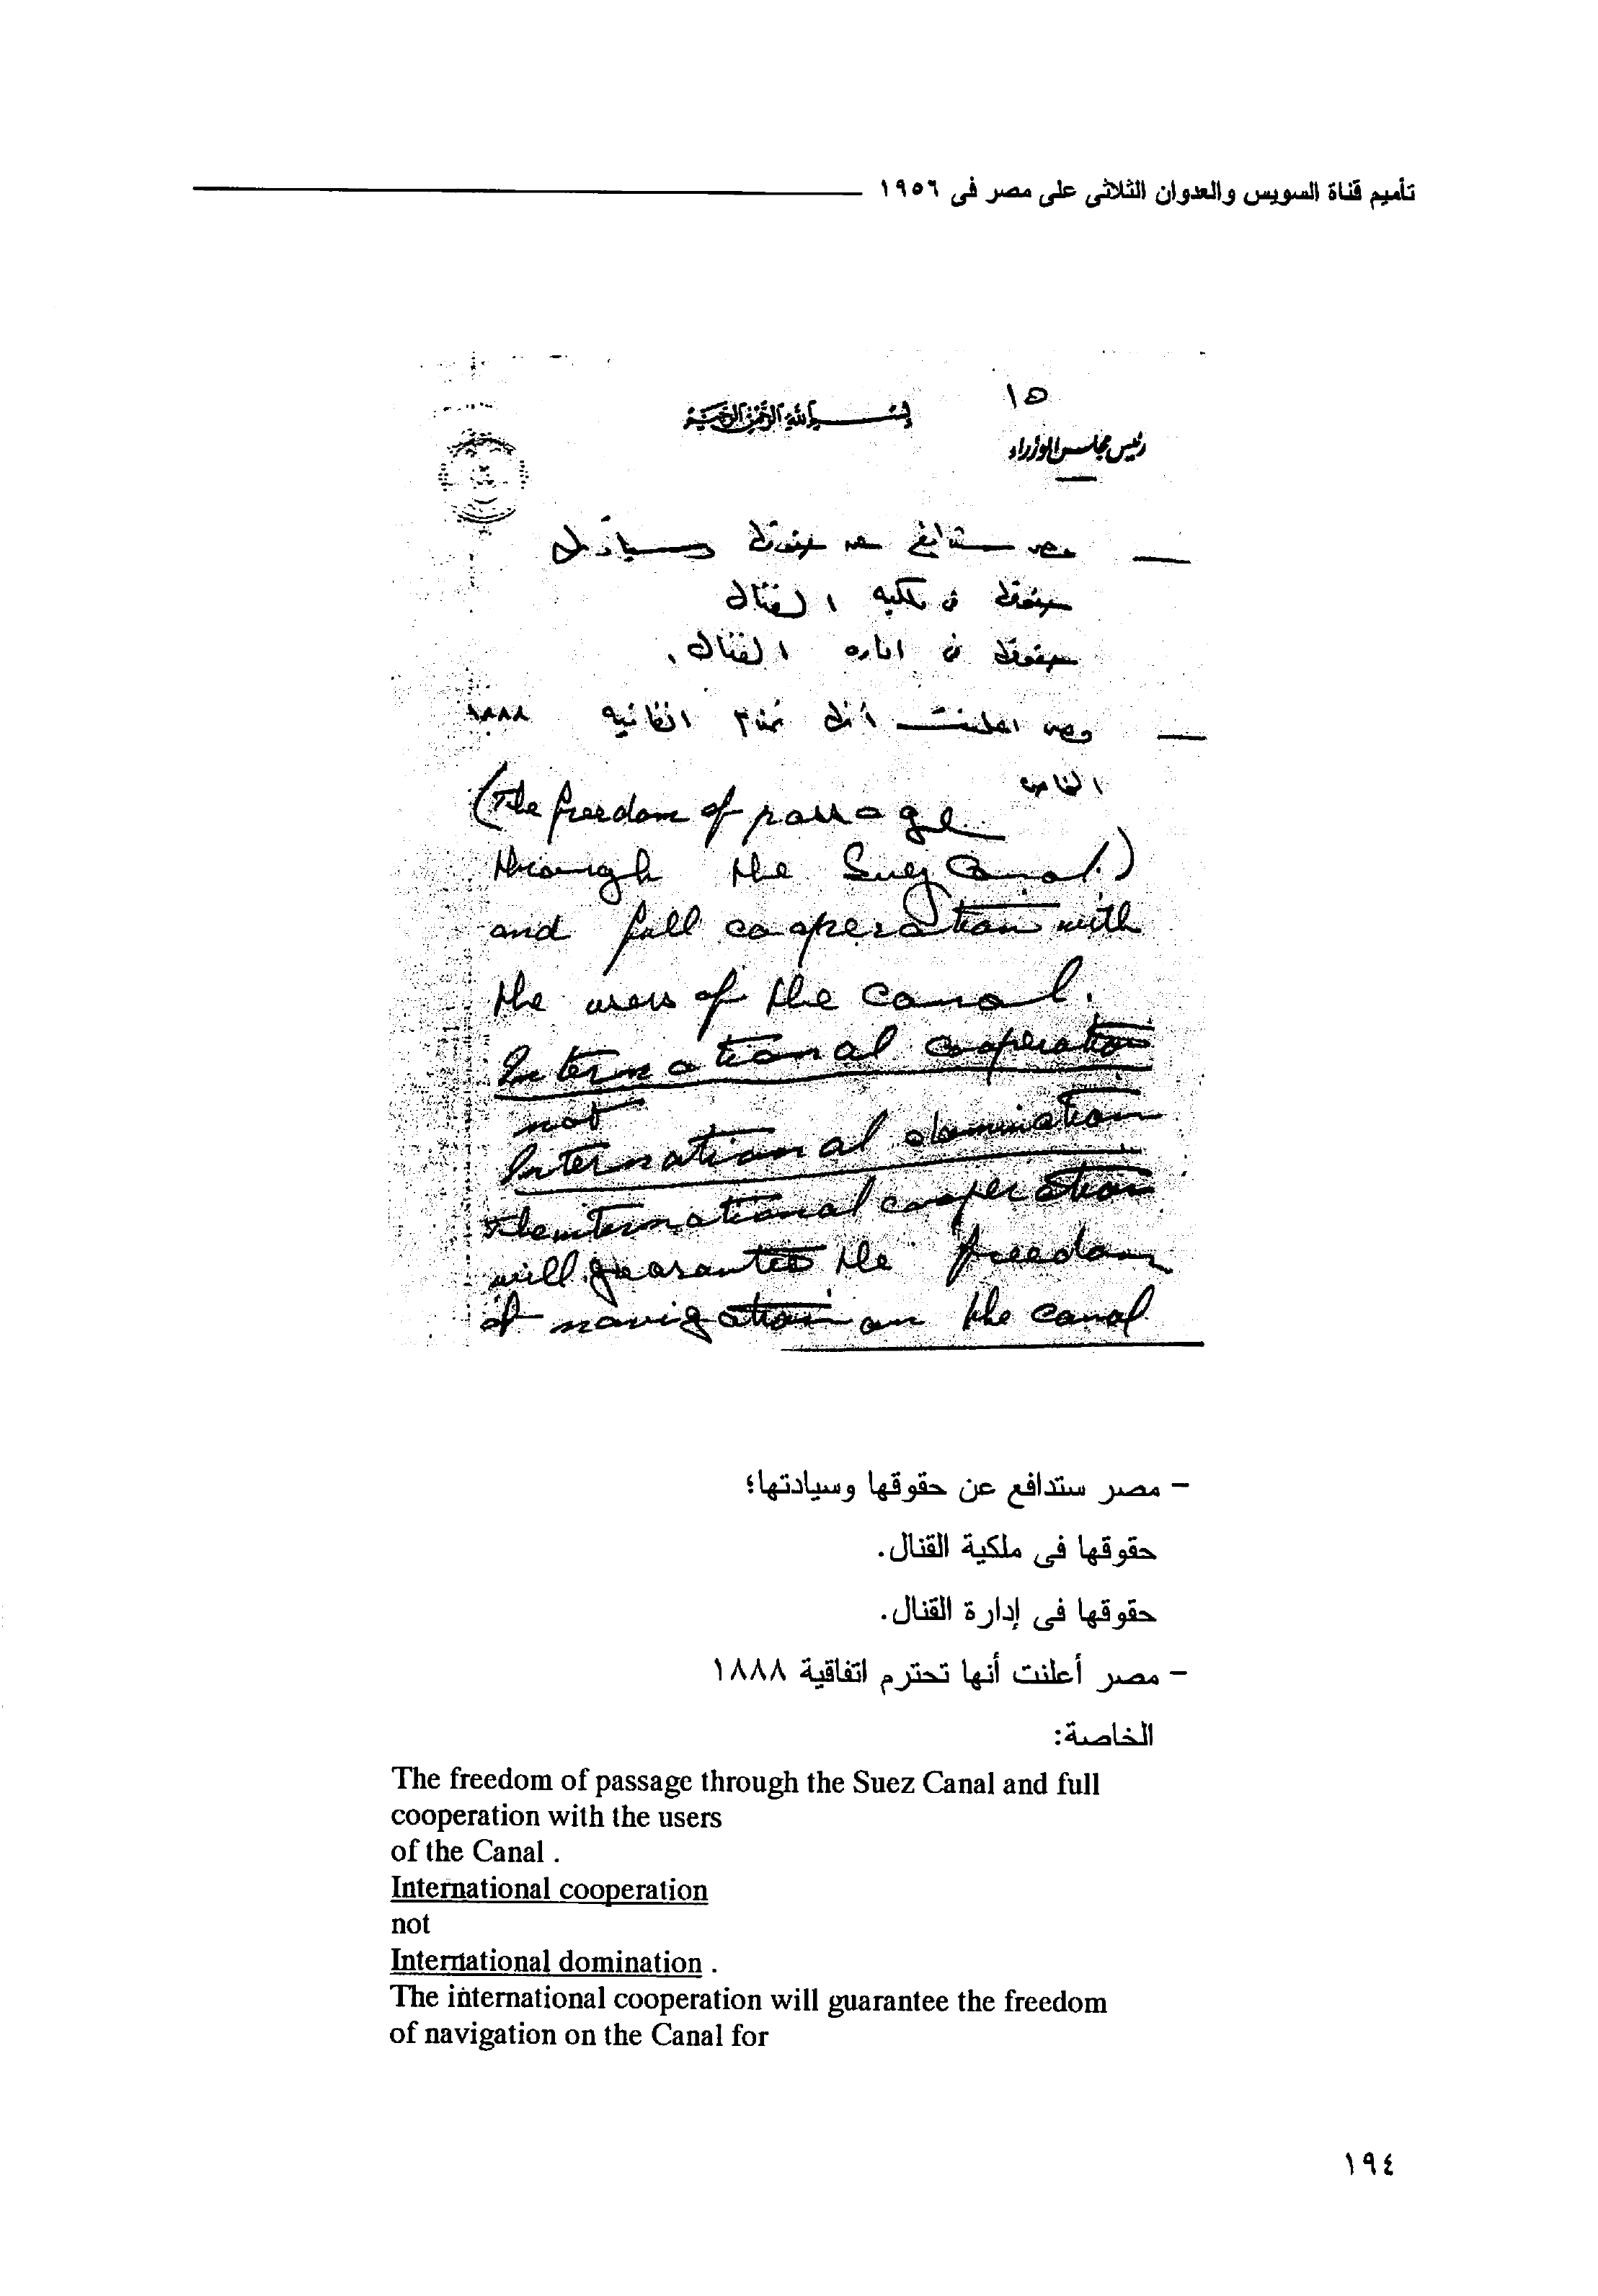 تأميم قناة السويس والعدوان الثلاثى على مصر فى ١٩٥٦
١٥
بسم الله الرحمن الرحيم
رئيس مجلس الوزراء
— مصر ستدافع عن حقوقها وسيادتها
حقوقها فى ملكيه القنال
حقوقها فى اداره القنال.
— مصر اعلنت أنها تحترم اتفاقيه ١٨٨٨
الخاصه
(The freedom of passage
through the Suez Canal.)
and full cooperation with
the users of the canal.
International cooperation
not
International domination
The international cooperation
will guarantee the freedom
of navigation on the canal
– مصر ستدافع عن حقوقها وسيادتها؛
حقوقها فى ملكية القنال.
حقوقها فى إدارة القنال.
– مصر أعلنت أنها تحترم اتفاقية ١٨٨٨
الخاصة:
The freedom of passage through the Suez Canal and full
cooperation with the users
of the Canal .
International cooperation
not
International domination .
The international cooperation will guarantee the freedom
of navigation on the Canal for
١٩٤